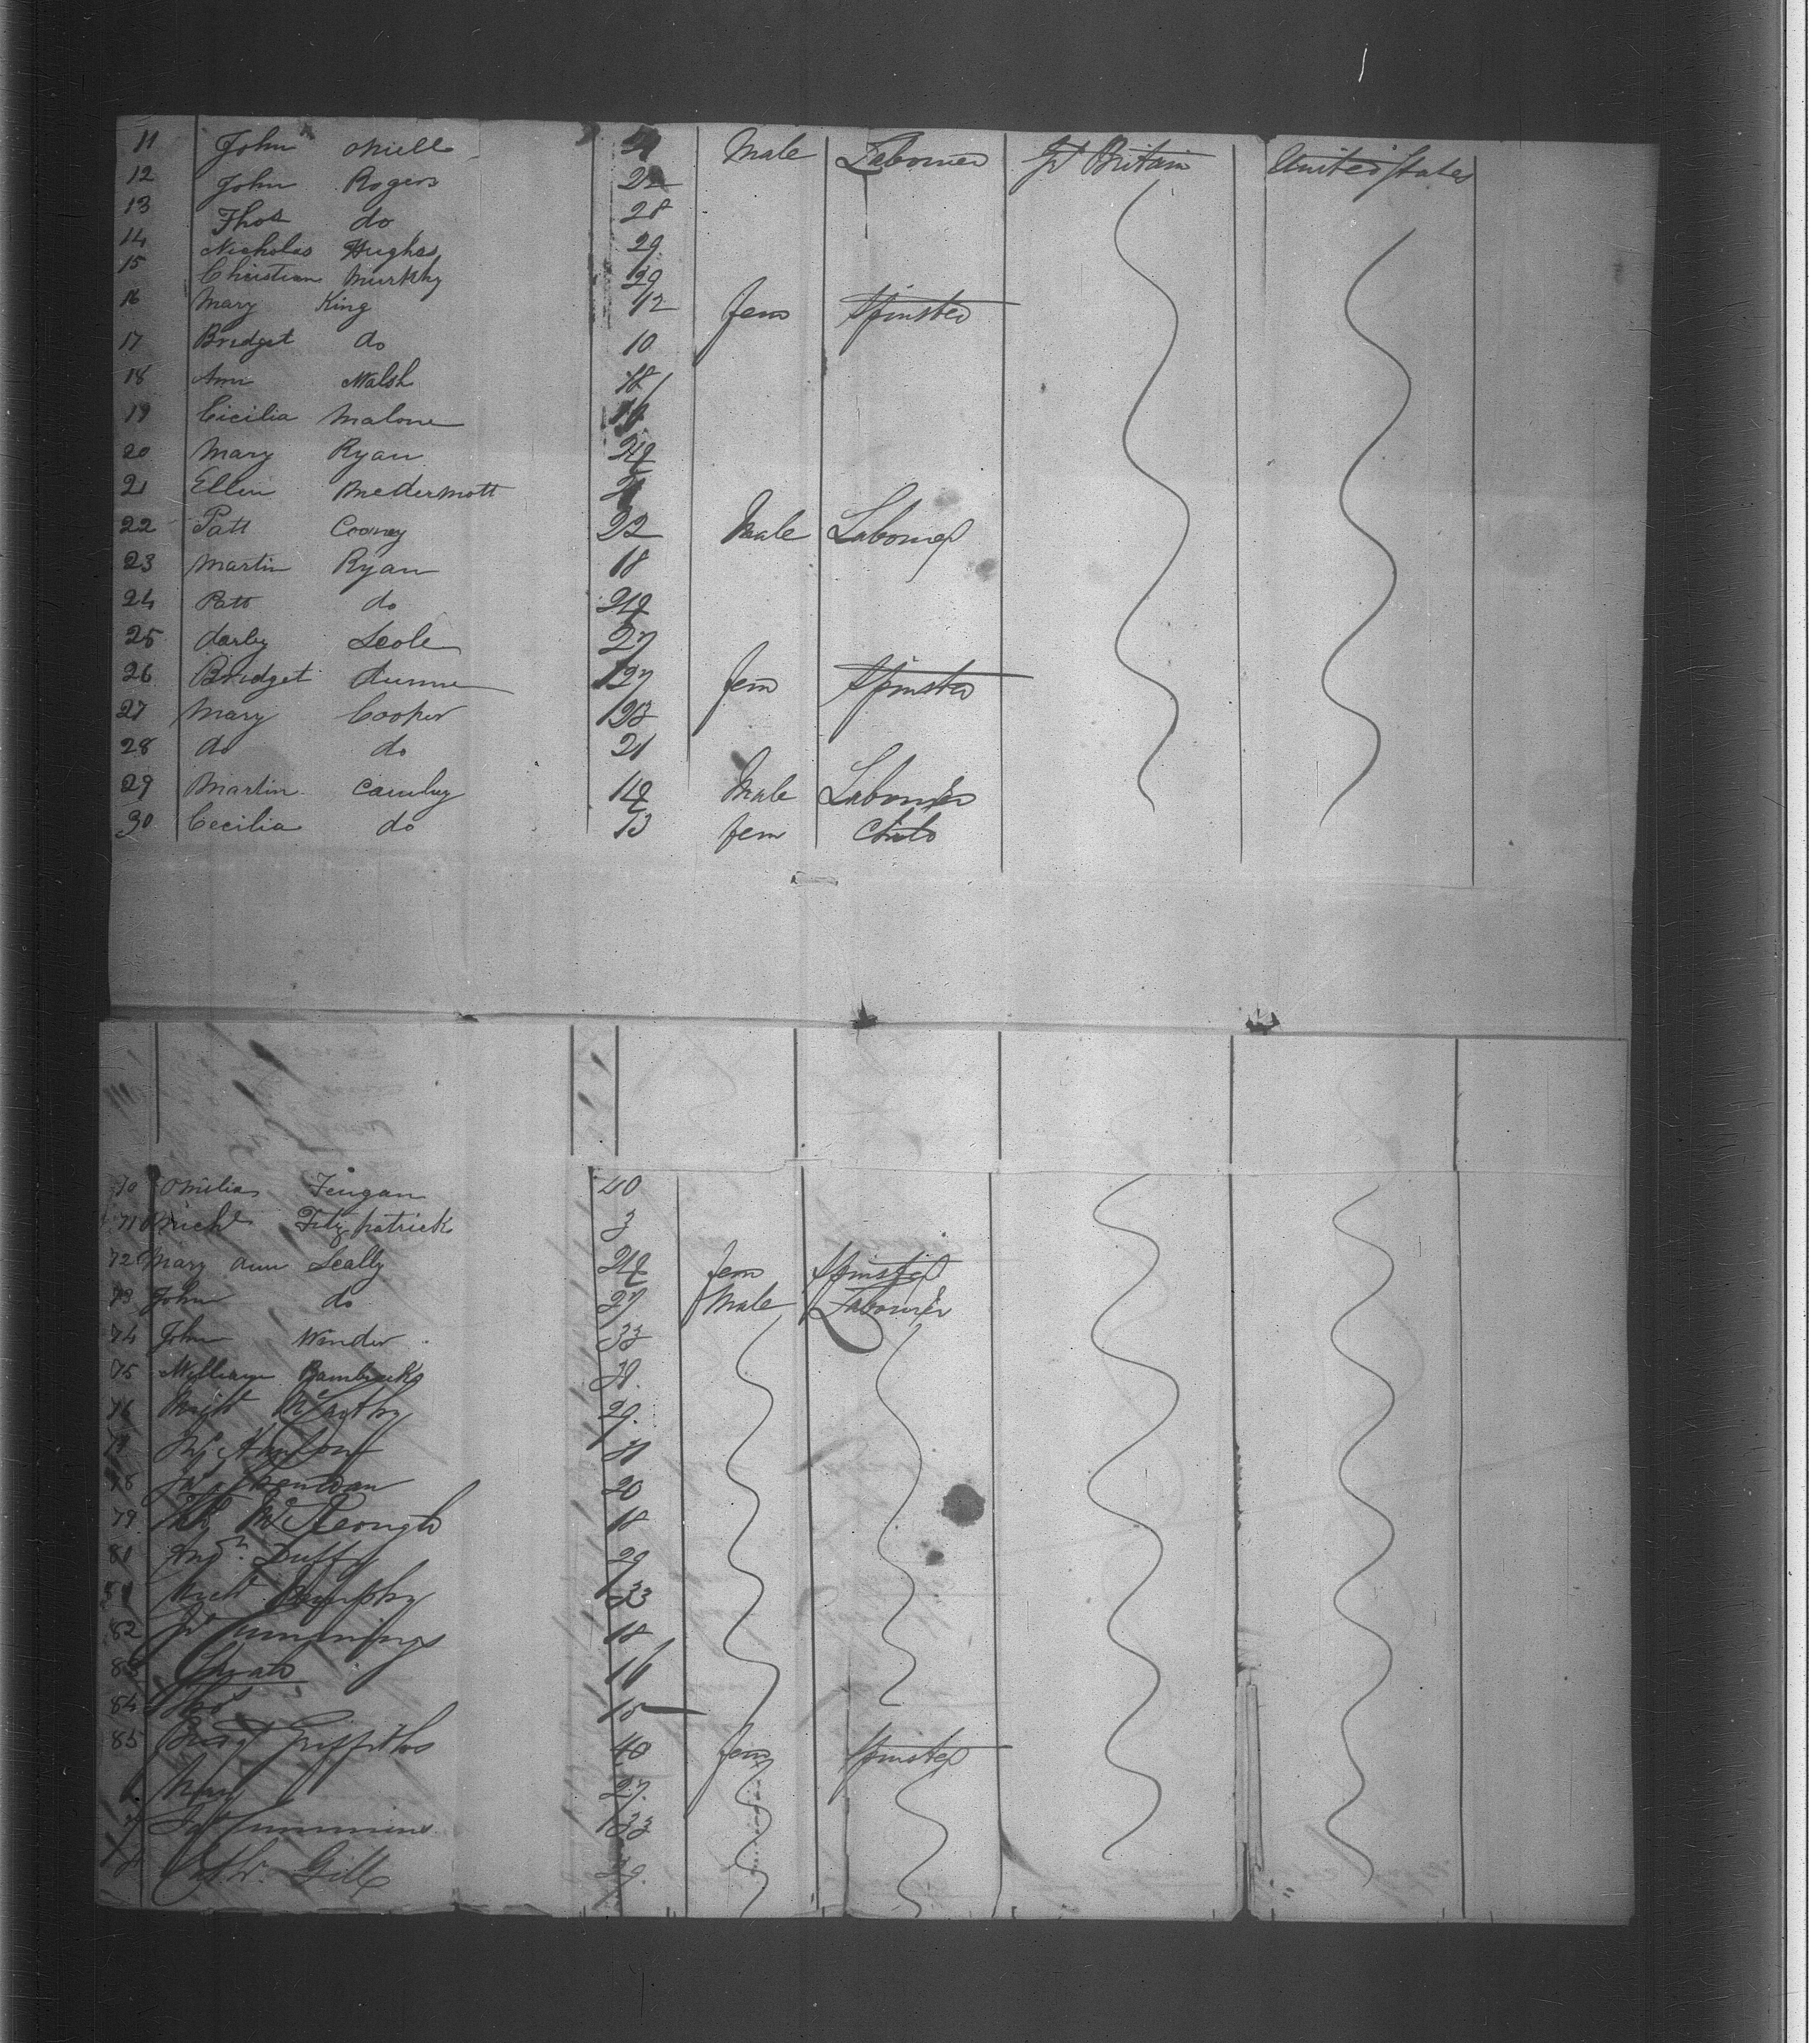 11 John ONiell Male Labourer Gt Britain United States
12 John Rogers 22
13 Thos do 28
14 Nicholas Hughes 29
15 Christian Murphy 29
16 Mary King 12 fem Spinster
17 Bridget do 10
18 Ann Walsh 18
19 Cicilia Malone 16
20 Mary Ryan 24
21 Ellen McDermott
22 Patt Cooney 22 Male Labourer
23 Martin Ryan 18
24 Patt do 24
25 darby Scole 27
26 Bridget dunne 27 fem Spinster
27 Mary Cooper 23
28 do do 21
29 Martin Cambry 14 Male Labourer
30 Cecilia do 13 fem Child
70 Finigan 40
71 Michl Fitzpatrick 3
72 Mary ann Scally 24 fem Spinster
73 John do 27 Male Labourer
74 John Winder 33
75 William
76 McCarthy 29
77
78 20
79 McKeough 18
81 Duffy 29
81 Murphy 33
82 Cummings 18
83 16
84 Thos 15
85 Bridgt Griffiths 40 fem Spinster
6 Mary 27
7 Cummins 33
8 Gill 29